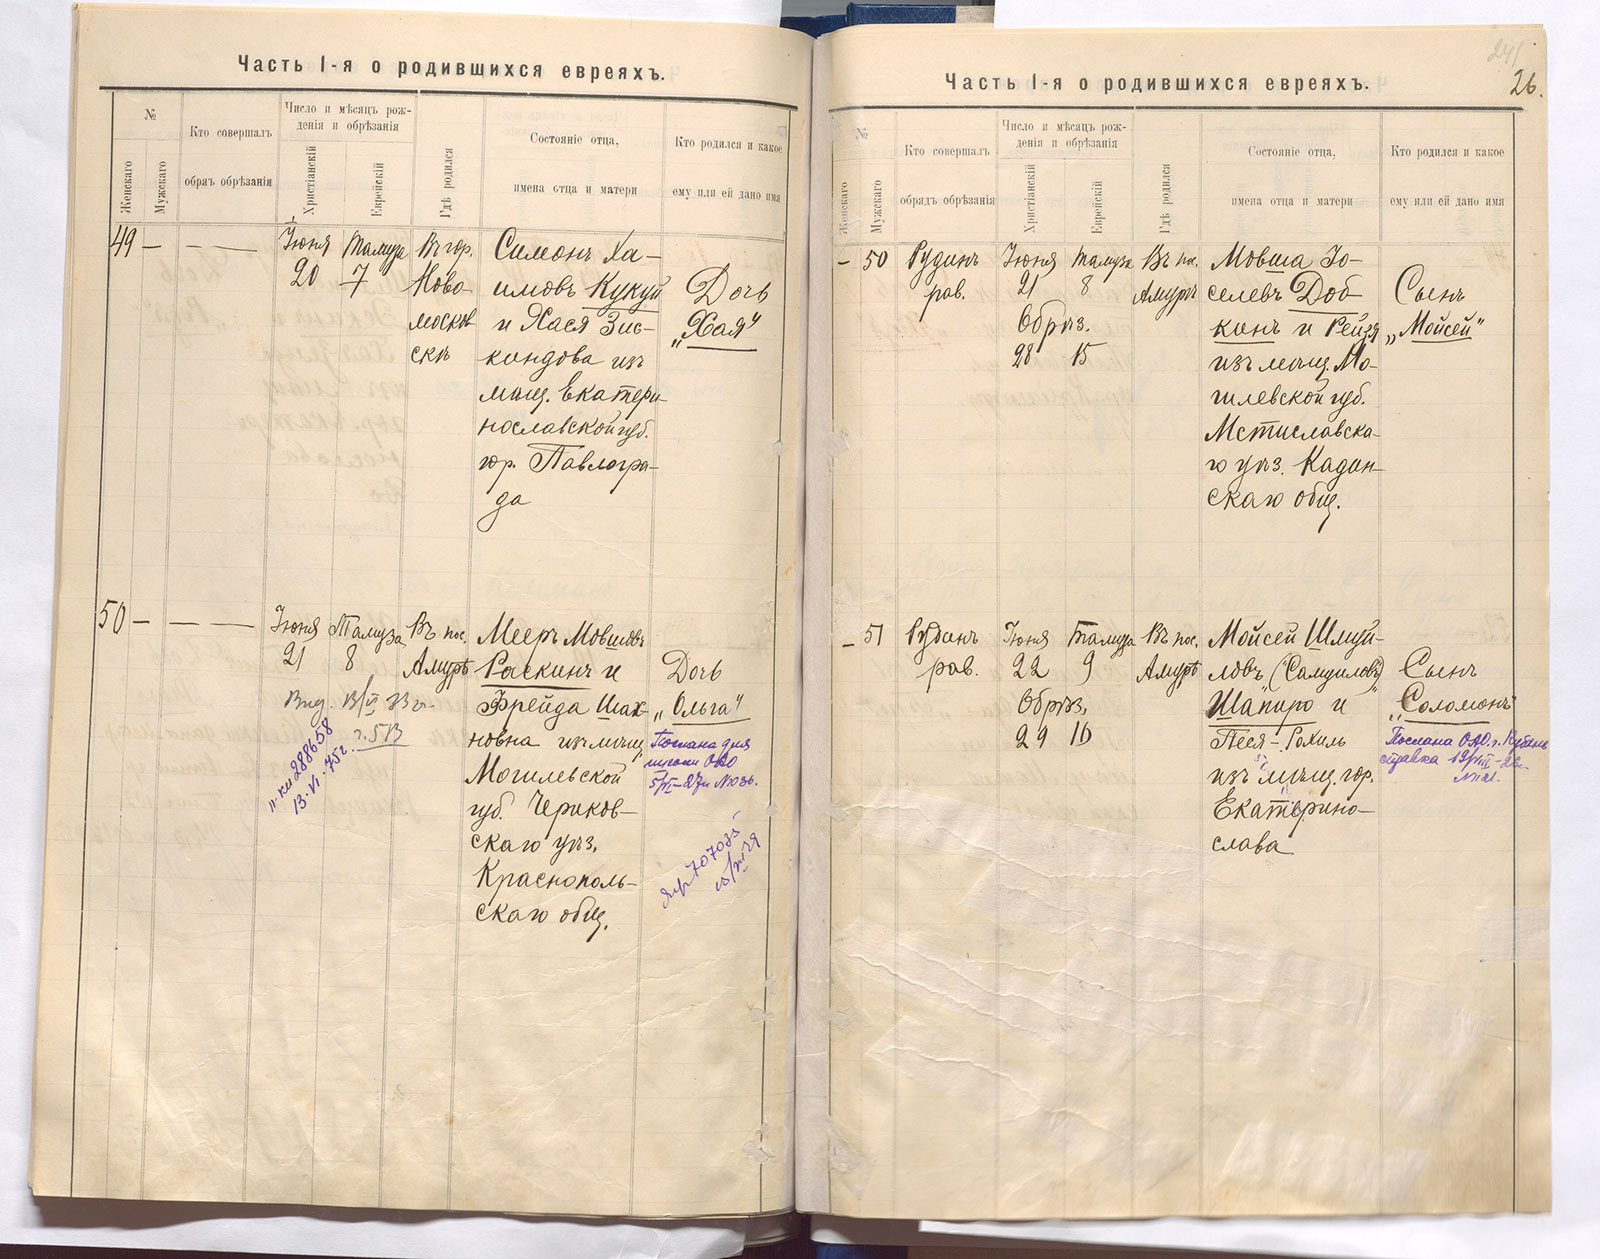 Часть I-я о родившихся евреяхъ.
№
Женскаго
Мужскаго
Кто совершалъ
обрядъ обрѣзанія
Число и мѣсяцъ рож-
денія и обрѣзанія
Христіанскій
Еврейскій
Гдѣ родился
Состояніе отца,
имена отца и матери
Кто родился и какое
ему или ей дано имя
49 — — —
Іюня
20
Тамуза
7
Въ гор.
Ново-
москов
скѣ
Симонъ Ха-
имовъ Кукуй
и Хася Зис-
кондова изъ
мѣщ. Екатери
нославской губ.
гор. Павлогра-
да
Дочь
„Хая"
50 — — —
Іюня
21
Тамуза
8
Въ пос.
Амурѣ
Мееръ Мовшовъ
Раскинъ и
Фрейда Шах-
новна изъ мѣщ.
Могилевской
губ. Чериков-
скаго уѣз.
Краснополь-
скаго общ.
Дочь
„Ольга"
288658
13.VI.75г.
707035
Часть I-я о родившихся евреяхъ.
26.
№
Женскаго
Мужскаго
Кто совершалъ
обрядъ обрѣзанія
Число и мѣсяцъ рож-
денія и обрѣзанія
Христіанскій
Еврейскій
Гдѣ родился
Состояніе отца,
имена отца и матери
Кто родился и какое
ему или ей дано имя
— 50
рав.
Іюня
21
Обрѣз.
28
Тамуза
8
15
Въ пос.
Амурѣ
Мовша Іо-
селевъ Доб-
кинъ и Рейзя
изъ мѣщ. Мо-
гилевской губ.
Мстиславска-
го уѣз. Кадин-
скаго общ.
Сынъ
„Мойсей"
— 51
рав.
Іюня
22
Обрѣз.
29
Тамуза
9
16
Въ пос.
Амурѣ
Мойсей Шмуй-
ловъ („Самуиловъ")
Шапиро и
Песя-Рохиль
изъ мѣщ. гор.
Екатерино-
слава
Сынъ
„Соломонъ"